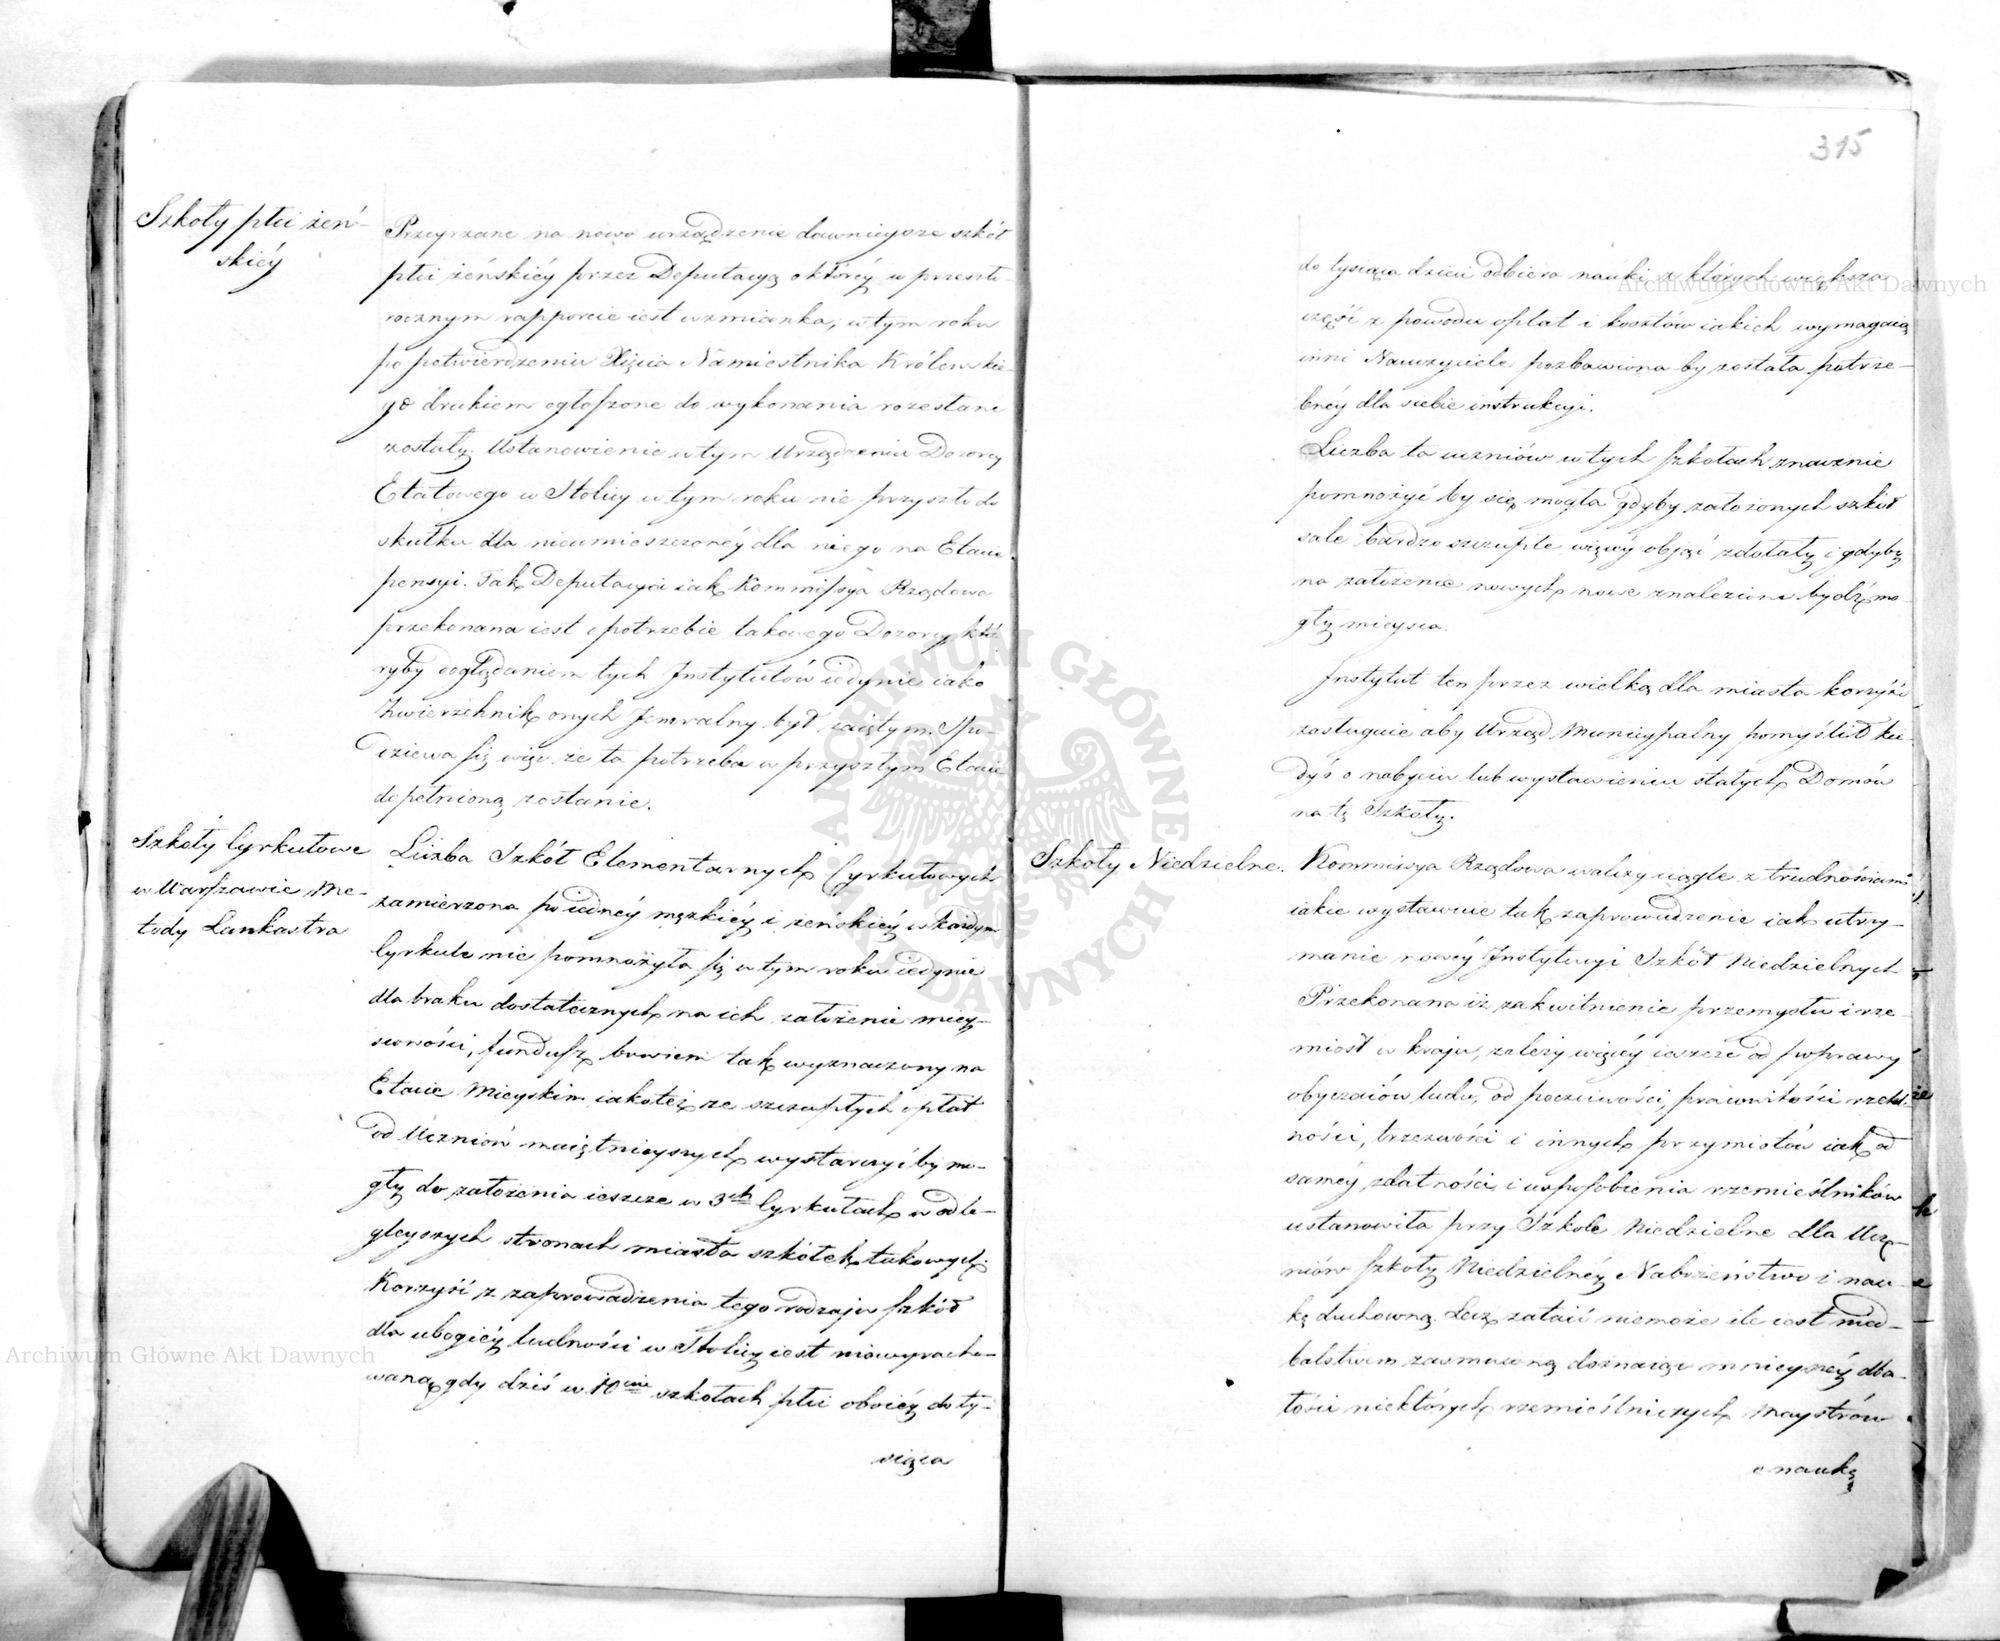 Szkoły płci żeń-
skiéy
Przeyrzane na nowo urządzenie dawnieysze szkół
płci żeńskiéy przez Deputacyą o któréy w przeszło-
rocznym rapporcie iest wzmianka, w tym roku
po potwierdzeniu Xięcia Namiestnika Królewskie-
go drukiem ogłoszone do wykonania rozesłane
zostały. Ustanowienie w tym Urządzeniu Dozorcy
Etatowego w Stolicy w tym roku nie przyszło do
skutku dla nieumieszczonéy dla niego na Etacie
pensyi. Tak Deputacya iak Kommissya Rządowa
przekonana iest o potrzebie takowego Dozorcy któ-
ryby doglądaniem tych Instytutów iedynie iako
Zwierzchnik onych Jeneralny był zaiętym. Spo-
dziewa się więc że ta potrzeba w przyszłym Etacie
dopełnioną zostanie.
Szkoły Cyrkułowe
w Warszawie Me-
tody Lankastra
Liczba Szkół Elementarnych Cyrkułowych
zamierzona po iednéy męzkiéy i żeńskiéy w każdym
Cyrkule nie pomnożyła się w tym roku iedynie
dla braku dostatecznych na ich założenie miey-
scowości, fundusz bowiem tak wyznaczony na
Etacie Mieyskim iakoteż ze szczupłych opłat
od Uczniów maiętnieyszych wystarczyćby mo-
gły do założenia ieszcze w 3ch Cyrkułach w odle-
gleyszych stronach miasta szkółek takowych.
Korzyść z zaprowadzenia tego rodzaju szkół
dla ubogiéy ludności w Stolicy iest niewyracho-
waną gdy dziś w 10ciu szkołach płci oboiéy do ty-
siąca
315
do tysiąca dzieci odbiera nauki z których większa
część z powodu opłat i kosztów iakich wymagaią
inni Nauczyciele pozbawiona by została potrze-
bnéy dla siebie instrukcyi.
Liczba ta uczniów w tych szkołach znacznie
pomnożyć by się mogła gdyby założonych szkół
sale bardzo szczupłe więcéy objąć zdołały i gdyby
na założenie nowych nowe znalezione bydź mo-
gły mieysca.
Instytut ten przez wielką dla miasta korzyść
zasługuie aby Urząd Municypalny pomyślił kie-
dyś o nabyciu lub wystawieniu stałych Domów
na tę Szkoły.
Szkoły Niedzielne.
Kommissya Rządowa walczy ciągle z trudnościami
iakie wystawuie tak zaprowadzenie iak utrzy-
manie nowéy Instytucyi Szkół Niedzielnych
Przekonana iż zakwitnienie przemysłu i rze-
miosł w kraju, zależy więcéy ieszcze od poprawy
obyczaiów ludu, od poczciwości, prawwitości rzetel-
ności, trzeźwości i innych przymiotów iak od
saméy zdatności i usposobienia rzemieślników
ustanowiła przy Szkole Niedzielne dla Ucz-
niów szkoły Niedzielnéy Nabożeństwo i nau-
kę duchowną. Lecz zataić niemoże ile iest nied-
balstwem zasmuconą doznaiąc mnieyszéy dba-
łości niektórych rzemieślniczych Maystrów
o naukę
Archiwum Główne Akt Dawnych
Archiwum Główne Akt Dawnych
ARCHIWUM GŁÓWNE AKT DAWNYCH